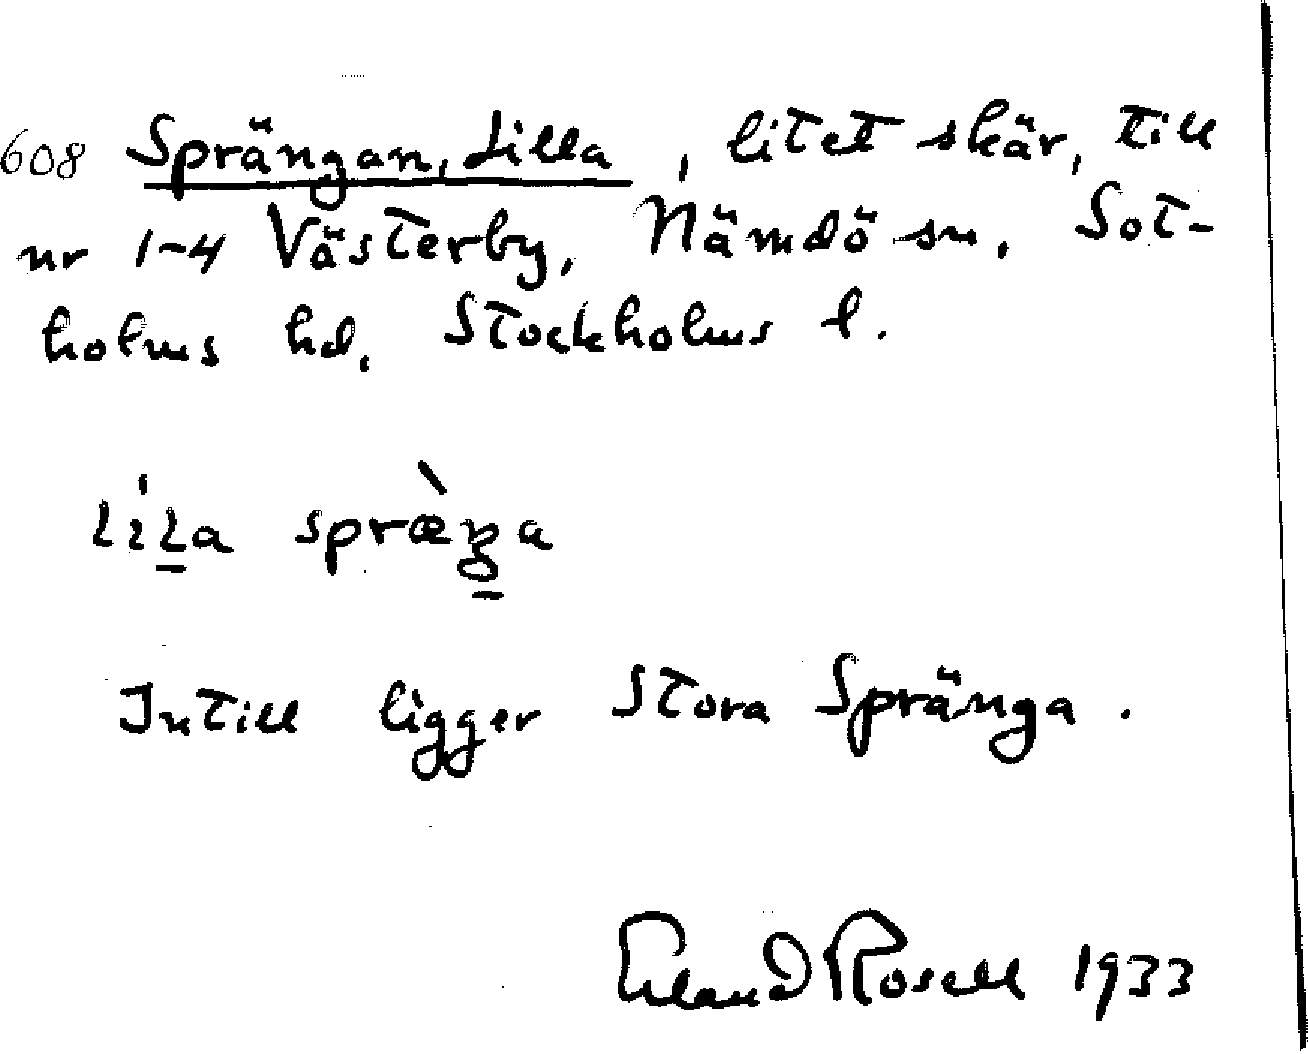 608 Sprängan, Lilla, litet skär, till
nr 1-4 Västerby, Nämdö sn, Sot-
holms hd, Stockholms l.
lila spræ̀ŋa
Intill ligger Stora Spränga.
Erland Rosell 1933